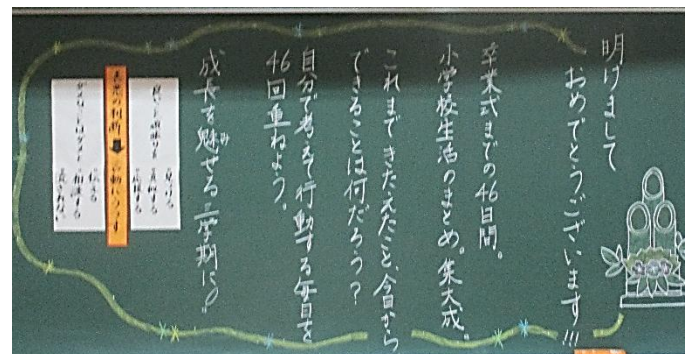 明けまして
おめでとうございます!!!
卒業式までの46日間。
小学校生活のまとめ。集大成。
これまできたえたこと、今日から
できることは何だろう?
自分で考えて行動する毎日を
46回重ねよう。
成長を魅せる三学期に!。
み
善悪の判断➡行動にうつす